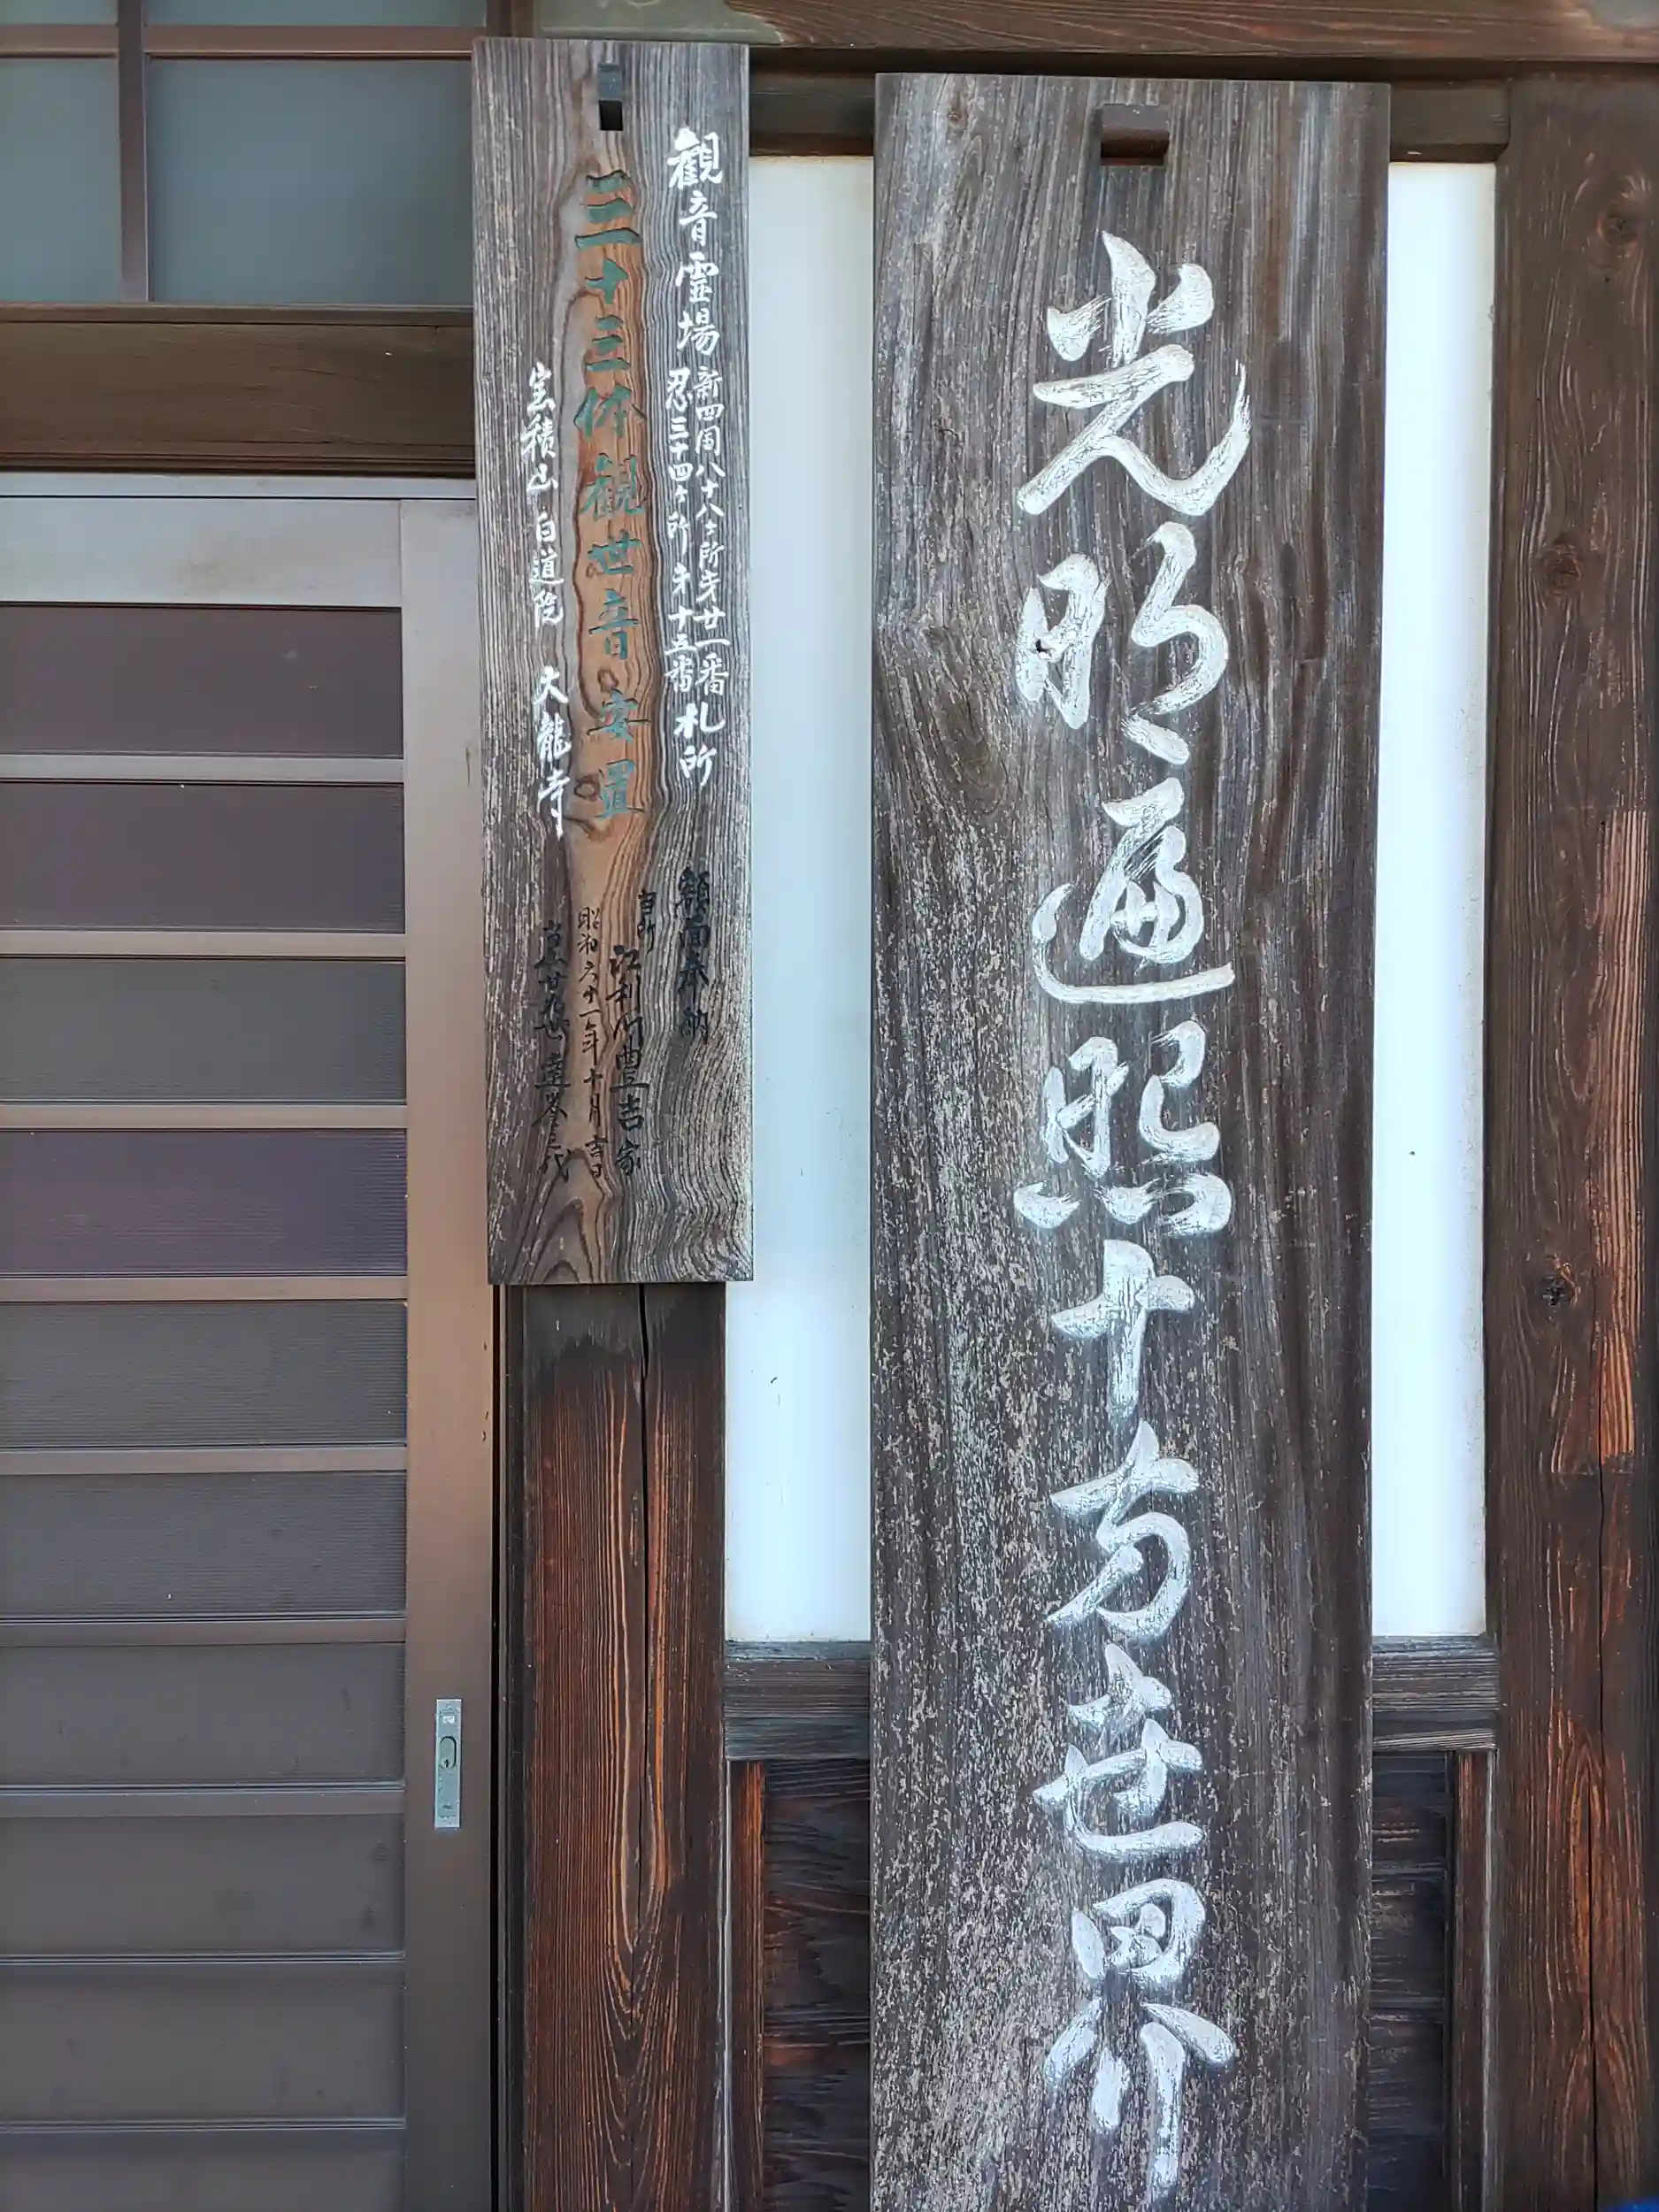 光明遍照十方世界
観音霊場
新四国八十八ヶ所第廿一番
忍三十四ヶ所第十五番
札所
三十三体観世音安置
宝積山 白道院 大龍寺
額面奉納
当所 江利川豊吉家
昭和六十一年十月吉日